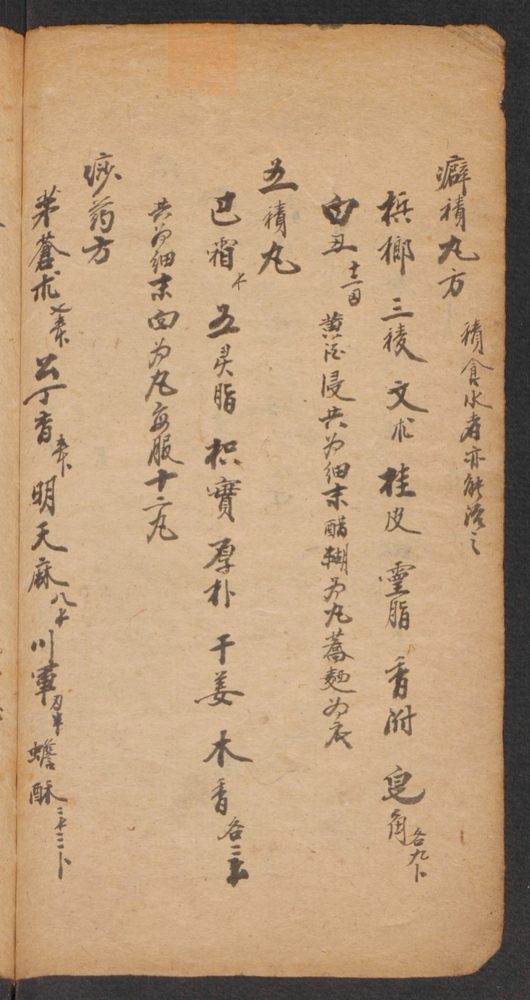 癖積丸方 積食水者亦能治之
梹榔 三稜 文朮 桂皮 靈脂 香附 皂角 各九卜
白丑 十二 黄酒浸共为細末醋糊为丸蕎麪为衣
五積丸
巴霜 五灵脂 枳實 厚朴 干姜 木香 各三
共为細末面为丸每服十二丸
痧药方
茅蒼朮 公丁香 明天麻 八 川軍 蟾酥